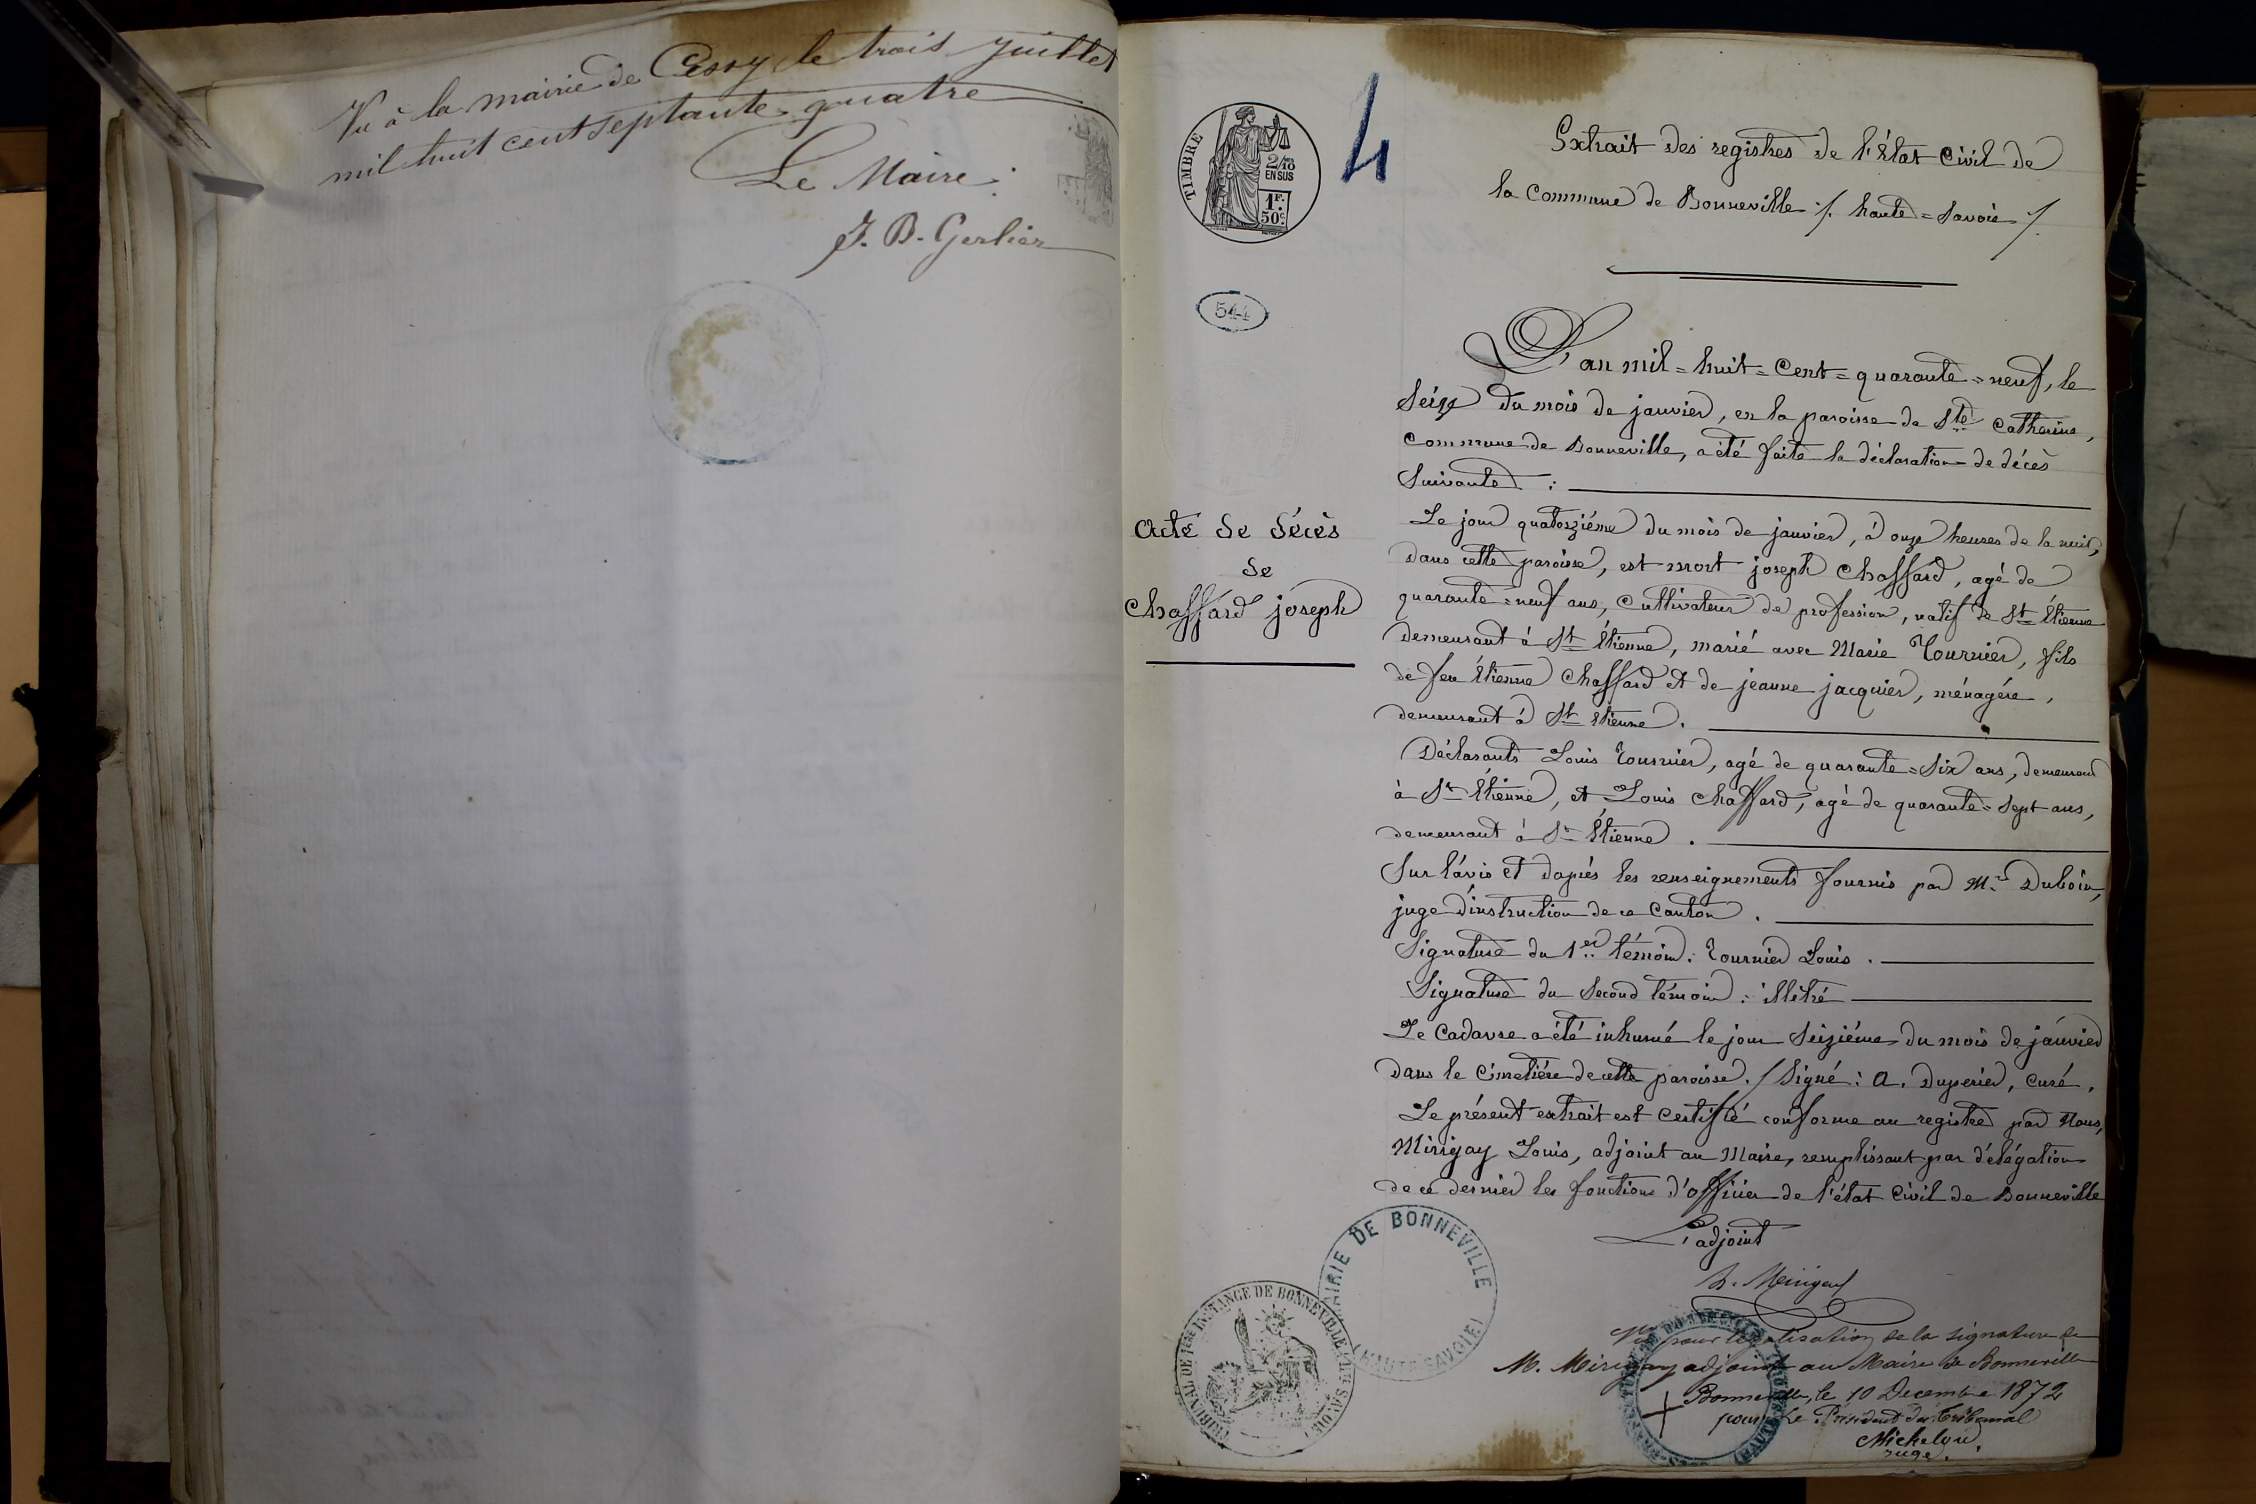 Vu à la mairie de Cessy le trois juillet
mil huit cent septante quatre
Le Maire:
J. B. Gerlier
TIMBRE
2/10
EN SUS
1F.
50c
4
544
Extrait des registres de l'état Civil de
la Commune de Bonneville /. haute=Savoie /.
L'an mil=huit=Cent=quarante=neuf, le
Seize du mois de janvier, en la paroisse de Ste Catherine,
Commune de Bonneville, a été faite la déclaration de décès
Suivante :
Acte de décès
de
Chaffard joseph
Le jour quatorzième du mois de janvier, à onze heures de la nuit,
dans cette paroisse, est mort joseph Chaffard, agé de
quarante=neuf ans, Cultivateur de profession, natif de St Étienne
demeurant à St Étienne, marié avec Marie Tournier, fils
de feu Étienne Chaffard et de jeanne jacquier, ménagére,
demeurant à St Étienne.
Déclarants Louis Tournier, agé de quarante=Six ans, demeurant
à St Étienne, et Louis Chaffard, agé de quarante=Sept ans,
demeurant à St Étienne.
Sur l'avis et d'aprés les renseignements fournis par Mr Duboin,
juge d'instruction de ce Canton.
Signature du 1er témoin: Tournier Louis.
Signature du Second témoin: illétré
Le Cadavre a été inhumé le jour Seizième du mois de janvier
dans le Cimetiére de cette paroisse. / Signé: A. Duperier, curé.
Le présent extrait est Certifié conforme au registre par Nous,
Mirigay Louis, adjoint au Maire, remplissant par délégation
de ce dernier les fonctions d'officier de l'état Civil de Bonneville
L'adjoint
L. Mirigay
MAIRIE DE BONNEVILLE
(HAUTE SAVOIE)
TRIBUNAL DE 1ERE INSTANCE DE BONNEVILLE (HTE SAVOIE)
Vu pour légalisation de la signature de
M. Mirigay adjoint au Maire de Bonneville
Bonneville, le 10 Decembre 1872
pour Le Président du Tribunal
Michelon,
juge.